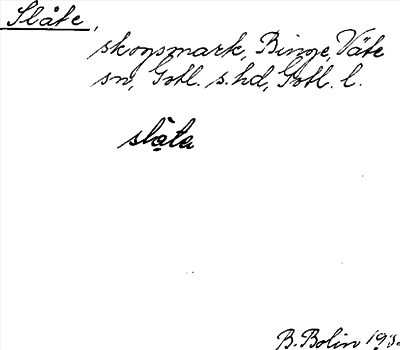 Slåte,
skogsmark, Binge, Väte
sn, Gotl. s. hd, Gotl. l.
slåta
B. Bolin